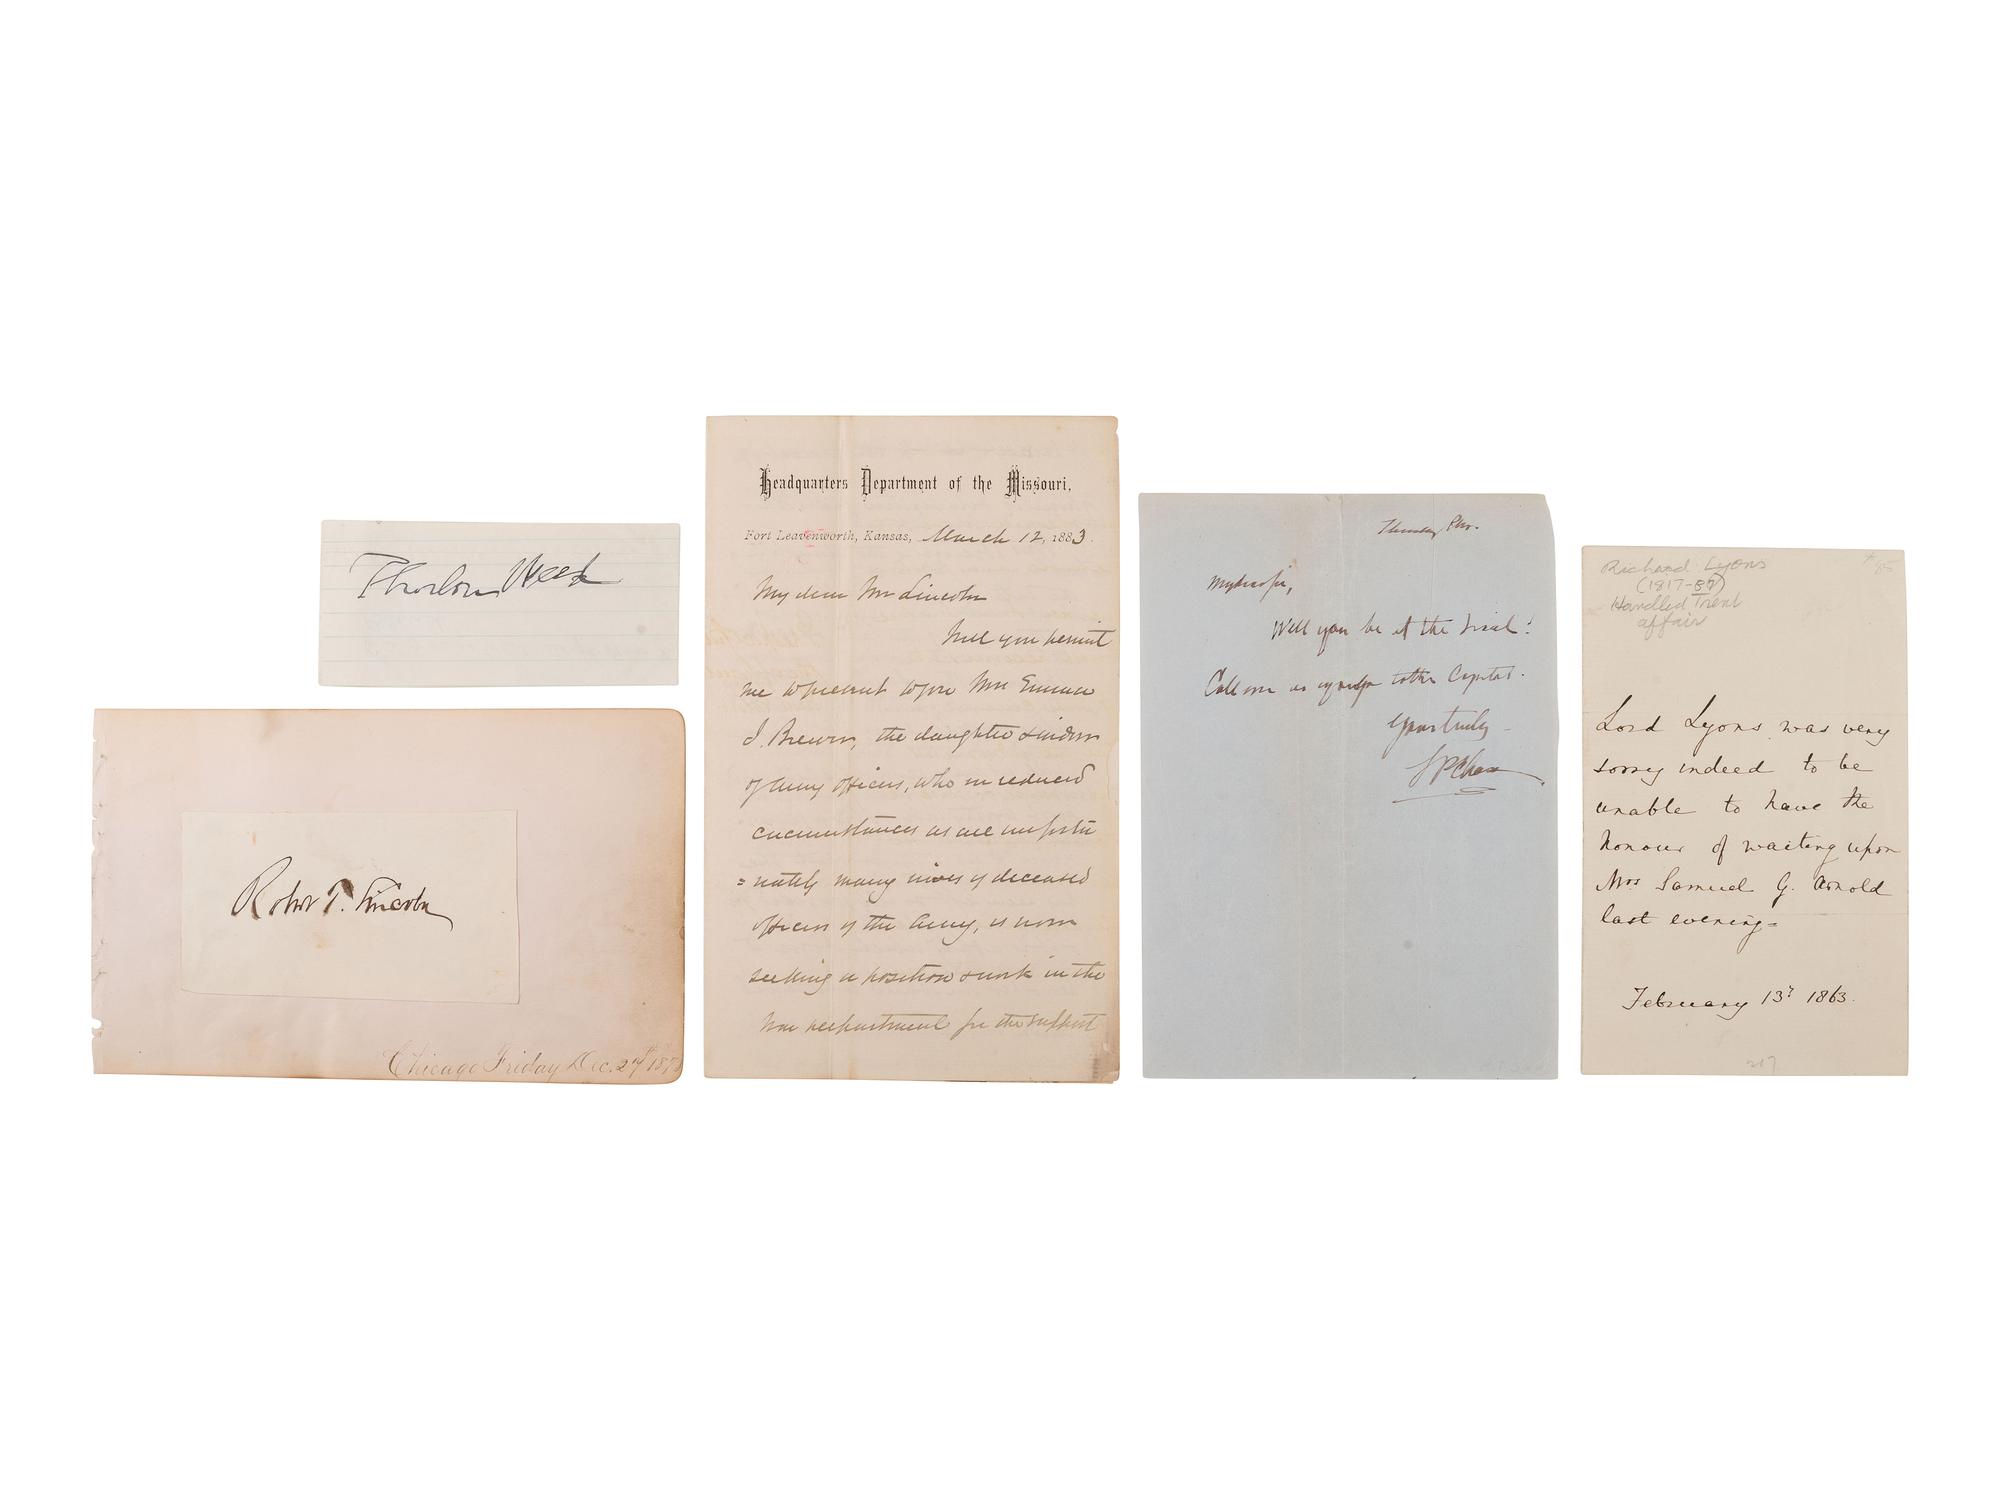 Thurlow Weed
Robert T. Lincoln
Chicago Friday Dec. 27th 187
Headquarters Department of the Missouri,
Fort Leavenworth, Kansas, March 12, 1883.
My dear Mr Lincoln
Will you permit
me to present to you Mrs Emma
J. Brewer, the daughter & widow
of Army officers, who in reduced
circumstances as are unfortu
=nately many wives of deceased
officers of the Army, is now
seeking a position & work in the
War Department for the support
Thursday
My dear Sir,
Will you be at the trial?
Call on us as you go to the Capitol.
Yours truly
S P Chase
Richard Lyons
(1817-87)
Handled Trent
affair
85
Lord Lyons was very
sorry indeed to be
unable to have the
honour of waiting upon
Mrs Samuel G. Arnold
last evening=
February 13th 1863.
217